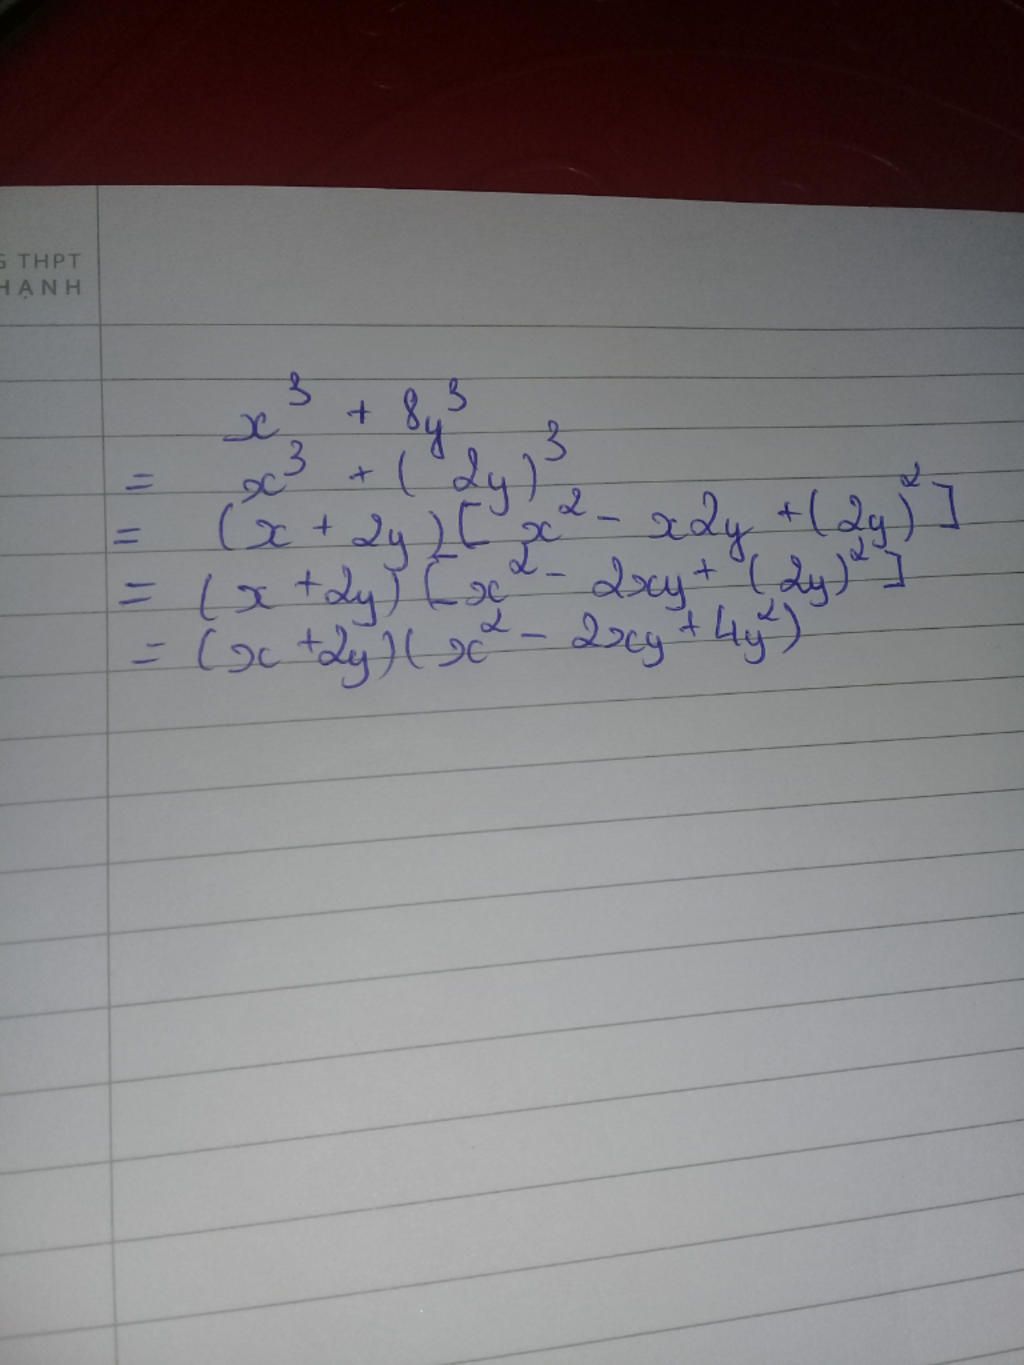 G THPT
HẠNH
x³ + 8y³
= x³ + (2y)³
= (x + 2y)[x² - x2y + (2y)²]
= (x + 2y)[x² - 2xy + (2y)²]
= (x + 2y)(x² - 2xy + 4y²)